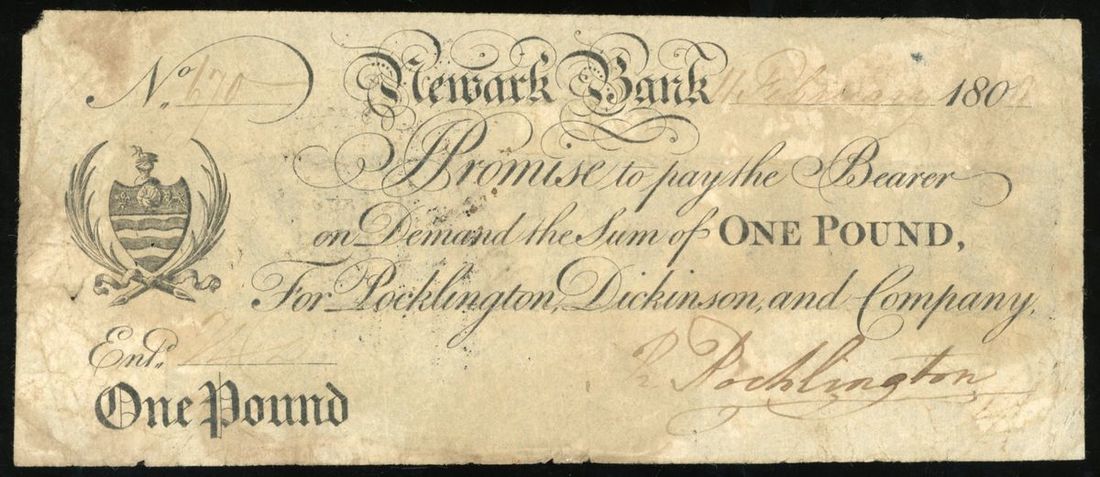 No. 670 Newark Bank 11 February 180
I Promise to pay the Bearer
on Demand the Sum of ONE POUND,
For Pocklington, Dickinson, and Company,
Entd.
R Pocklington
One Pound